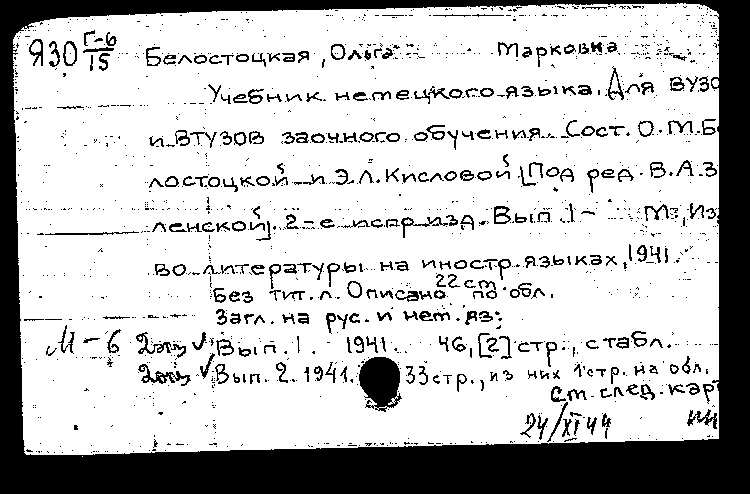 Я30 Г-6/15 Белостоцкая, Ольга Марковна
Учебник немецкого языка. Для ВУЗО
и ВТУЗОВ заочного обучения. Сост. О.М.Бе
лостоцкой и Э.Л.Кисловой [Под ред. В.А.З
ленской]. 2-е испр.изд. Вып. 1- М., Из
во литературы на иностр. языках, 1941.
22 cm
Без тит.л. Описано по обл.
Загл. на рус. и нем. яз:
М-6 2 экз ✓ Вып. 1. 1941. 46, [2] стр., с табл.
2 экз ✓ Вып. 2. 1941. 33 стр., из них 1 стр. на обл.
См. след. карт
24/XI 44